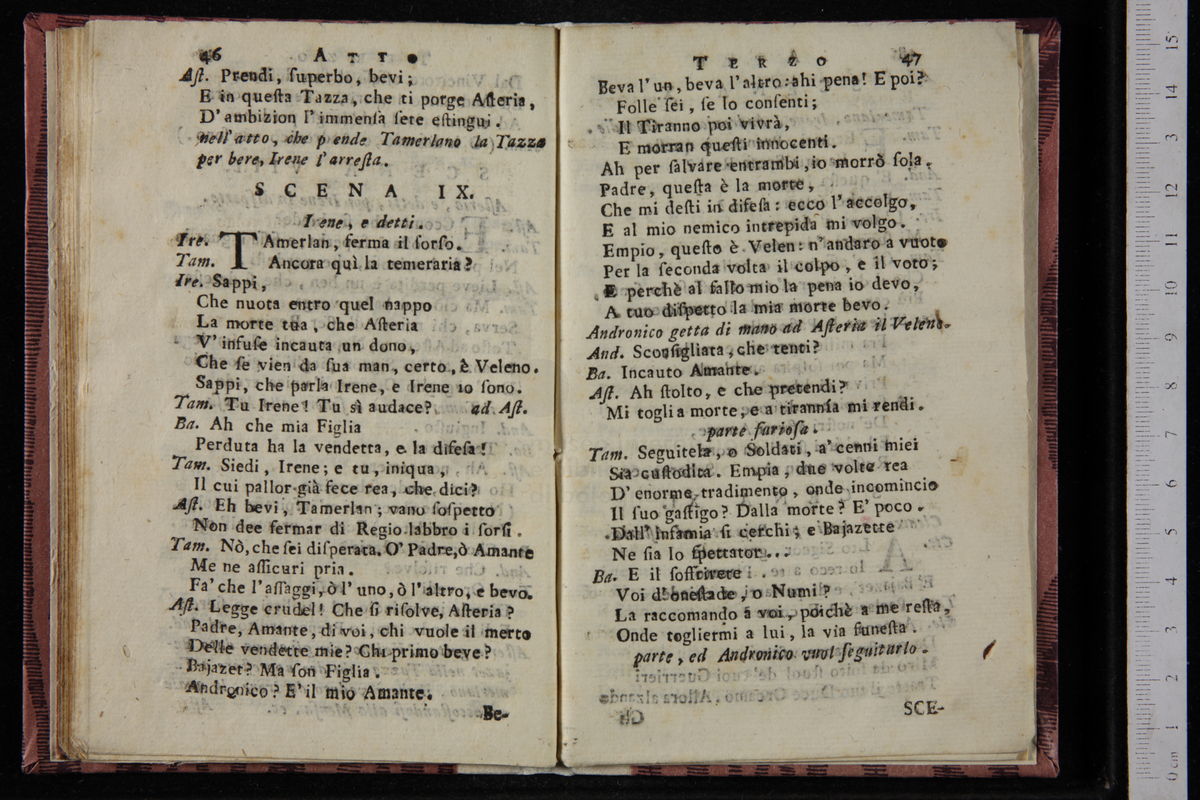 46 ATTO
Aſt. Prendi, ſuperbo, bevi;
E in queſta Tazza, che ti porge Aſteria,
D'ambizion l'immenſa ſete eſtingui.
nell'atto, che p ende Tamerlano la Tazza
per bere, Irene l'arreſta.
SCENA IX.
Irene, e detti.
Ire. TAmerlan, ferma il ſorſo.
Tam. Ancora quì la temeraria?
Ire. Sappi,
Che nuota entro quel nappo
La morte tua, che Aſteria
V'infuſe incauta un dono,
Che ſe vien da ſua man, certo, è Veleno.
Sappi, che parla Irene, e Irene io ſono.
Tam. Tu Irene! Tu sì audace? ad Aſt.
Ba. Ah che mia Figlia
Perduta ha la vendetta, e la difeſa!
Tam. Siedi, Irene; e tu, iniqua,
Il cui pallor già fece rea, che dici?
Aſt. Eh bevi, Tamerlan; vano ſoſpetto
Non dee fermar di Regio labbro i ſorſi.
Tam. Nò, che ſei diſperata. O' Padre, ò Amante
Me ne aſſicuri pria.
Fa' che l'aſſaggi, ò l'uno, ò l'altro, e bevo.
Aſt. Legge crudel! Che ſi riſolve, Aſteria?
Padre, Amante, di voi, chi vuole il merto
Delle vendette mie? Chi primo beve?
Bajazet? Ma ſon Figlia.
Andronico? E' il mio Amante.
Be-
TERZO 47
Beva l'un, beva l'altro: ahi pena! E poi?
Folle ſei, ſe lo conſenti;
Il Tiranno poi vivrà,
E morran queſti innocenti.
Ah per ſalvare entrambi, io morrò ſola.
Padre, queſta è la morte,
Che mi deſti in difeſa: ecco l'accolgo,
E al mio nemico intrepida mi volgo.
Empio, queſto è Velen: n'andaro a vuoto
Per la ſeconda volta il colpo, e il voto;
E perchè al fallo mio la pena io devo,
A tuo diſpetto la mia morte bevo.
Andronico getta di mano ad Aſteria il Veleno.
And. Sconſigliata, che tenti?
Ba. Incauto Amante.
Aſt. Ah ſtolto, e che pretendi?
Mi togli a morte, e a tirannía mi rendi.
parte furioſa.
Tam. Seguitela, o Soldati, a' cenni miei
Sia cuſtodita. Empia, due volte rea
D'enorme tradimento, onde incomincio
Il ſuo gaſtigo? Dalla morte? E' poco.
Dall' infamia ſi cerchi; e Bajazette
Ne ſia lo ſpettator...
Ba. E il ſoffrirete
Voi d'oneſtade, o Numi?
La raccomando a voi, poichè a me reſta,
Onde togliermi a lui, la via funeſta.
parte, ed Andronico vuol ſeguitarlo.
SCE-
0 cm 1 2 3 4 5 6 7 8 9 10 11 12 13 14 15